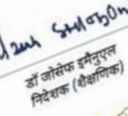 डॉ जोसेफ इमैनुएल
निदेशक (शैक्षणिक)